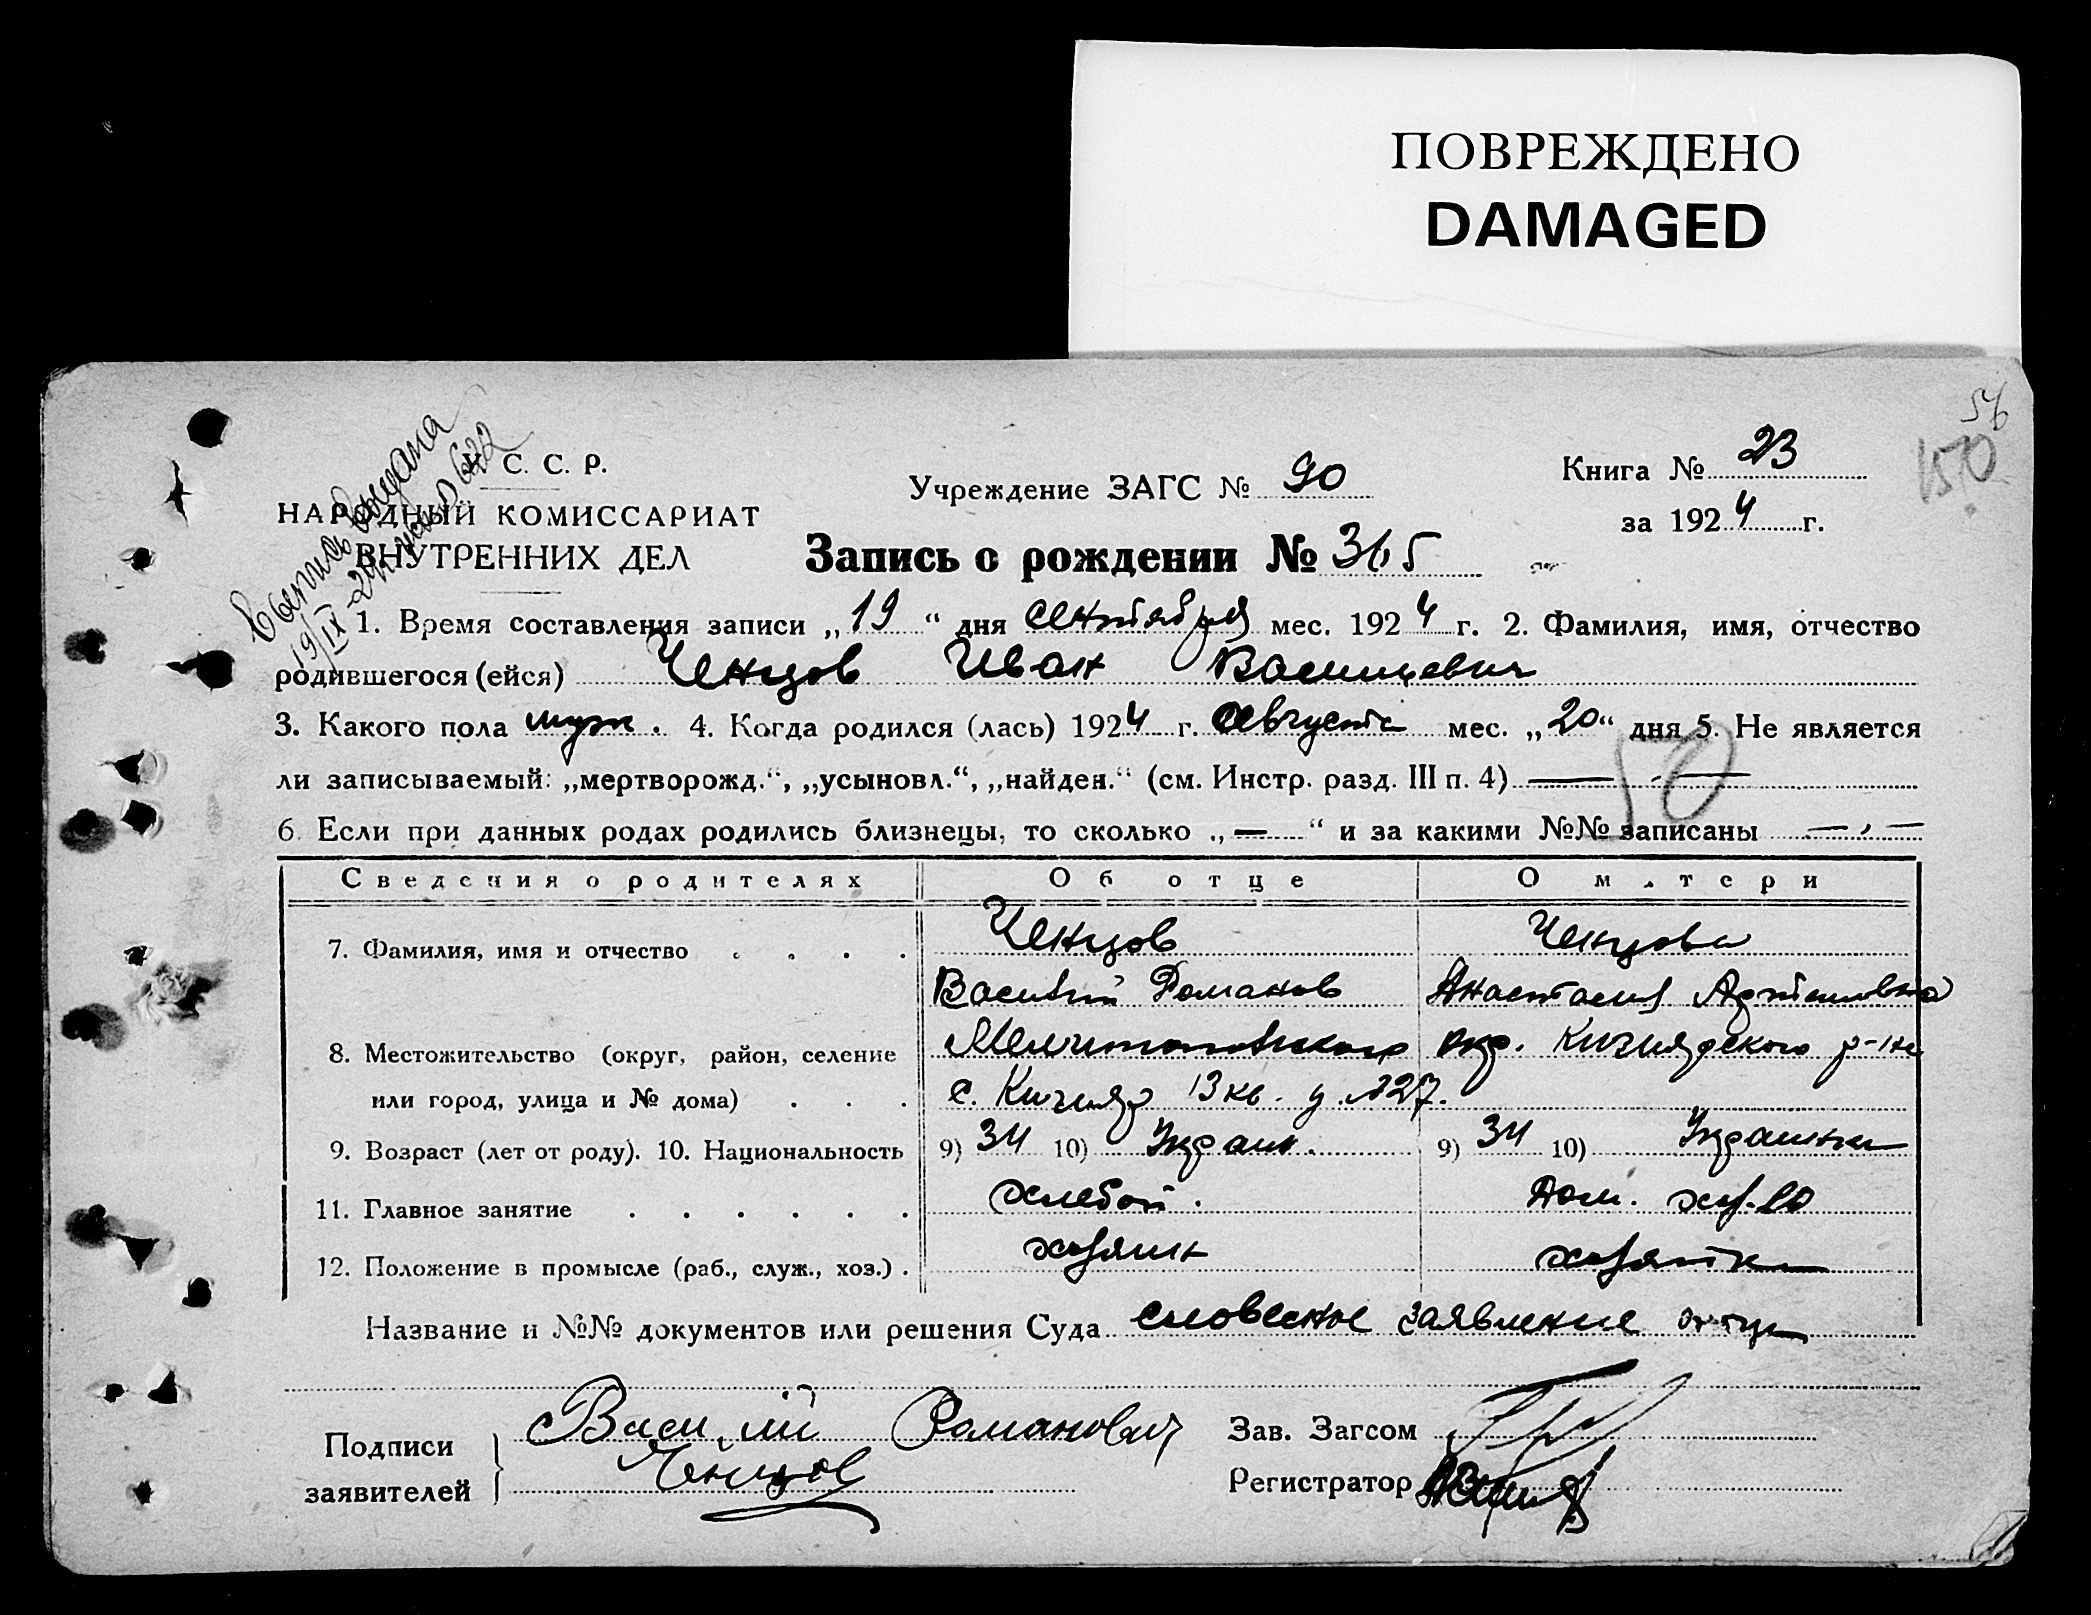 ПОВРЕЖДЕНО
DAMAGED
56
150
Выпись выдана
19/IX-24 г. за № 622
У. С. С. Р.
НАРОДНЫЙ КОМИССАРИАТ
ВНУТРЕННИХ ДЕЛ
Учреждение ЗАГС № 90
Книга № 23
за 1924 г.
Запись о рождении № 365
1. Время составления записи „19“ дня сентября мес. 1924 г. 2. Фамилия, имя, отчество
родившегося (ейся) Ченцов Иван Васильевич
3. Какого пола муж. 4. Когда родился (лась) 1924 г. августа мес. „20“ дня 5. Не является
ли записываемый: „мертворожд.“, „усыновл.“, „найден.“ (см. Инстр. разд. III п. 4) — — 50
6. Если при данных родах родились близнецы, то сколько „—“ и за какими №№ записаны — „ —
Сведения о родителях Об отце О м.тери
7. Фамилия, имя и отчество . . . . Ченцов Ченцова
Василий Романов Анастасия Артемовна
8. Местожительство (округ, район, селение Мелитопольского окр. Кизиярского р-на
или город, улица и № дома) . . . с. Кизияр 13 кв. д. №227.
9. Возраст (лет от роду). 10. Национальность 9) 34 10) Украин. 9) 34 10) Украинка
11. Главное занятие . . . . . . хлебоп. Дом. хоз-во
12. Положение в промысле (раб., служ., хоз.) . хозяин хозяйка
Название и №№ документов или решения Суда словесное заявление отца
Подписи
заявителей
Василий Романович
Ченцов
Зав. Загсом
Регистратор